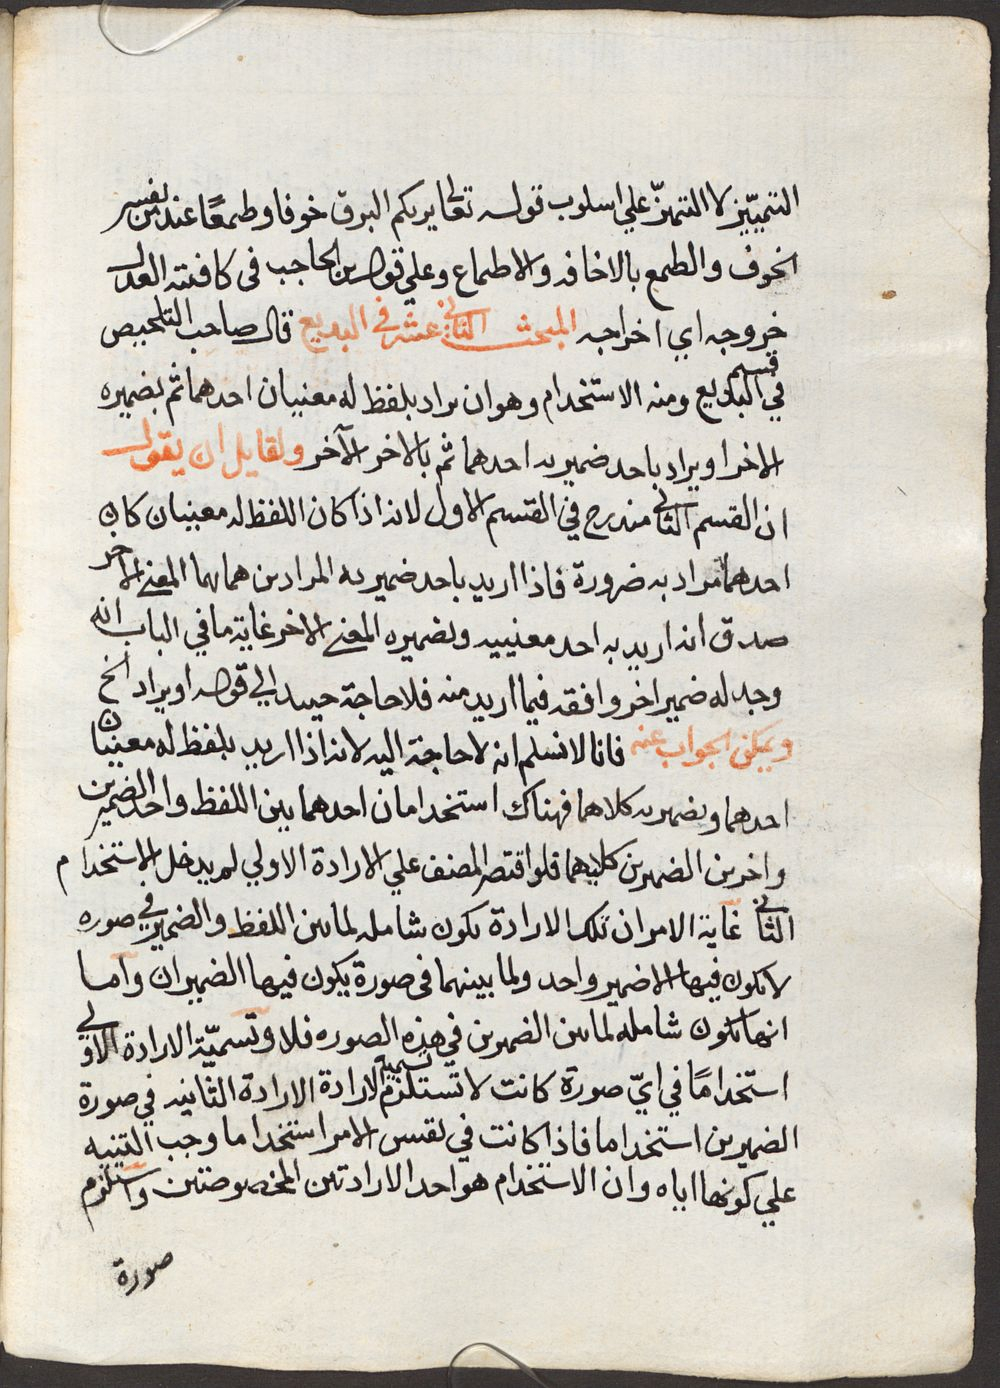 التمييز لا التميّز علي اسلوب قوله تعالي يريكم البرق خوفا وطمعًا عند من يفسر
الخوف والطمع بالاخافه والاطماع وعلي قول ابن الحاجب في كافيته العدل
خروجه اي اخراجه المبحث الثاني عشر في البديع قال صاحب التلخيص
في قسم البديع ومنه الاستخدام وهو ان يراد بلفظ له معنيان احدهما ثم بضميره
الاخر او يراد باحد ضميريه احدهما ثم بالاخر الآخر ولقايل ان يقول
ان القسم الثاني مندرج في القسم الاول لانه اذا كان اللفظ له معنيان كان
احدهما مراد به ضرورة فاذا اريد باحد ضميريه المرادين هما بهما المعني الاخر
صدق انه اريد به احد معنييه وبضميره المعني الاخر غاية ما في الباب انه
وجد له ضمير اخر وافقه فيما اريد منه فلا حاجة حينئذ الي قوله او يراد الخ
ويمكن الجواب عنه فانا لا نسلم انه لا حاجة اليه لانه اذا اريد بلفظ له معنيان
احدهما وبضميريه كلاهما فهناك استخدامان احدهما بين اللفظ واحد الضميرين
واخر بين الضميرين كليهما فلو اقتصر المصنف علي الارادة الاولي لم يدخل الاستخدام
الثاني غاية الامر ان تلك الارادة تكون شامله لما بين اللفظ والضمير في صوره
لا تكون فيها الا ضمير واحد ولما بينهما في صورة يكون فيها الضميران واما
انها تكون شامله لما بين الضميرين في هذه الصوره فلا وتسميّة الارادة الاولي
استخدامًا في ايّ صورة كانت لا تستلزم تسمية الارادة الارادة الثانيه في صورة
الضميرين استخداما فاذا كانت في نفس الامر استخداما وجب التنبيه
علي كونها اياه وان الاستخدام هو احد الارادتين المخصوصتين واستلزم
صورة